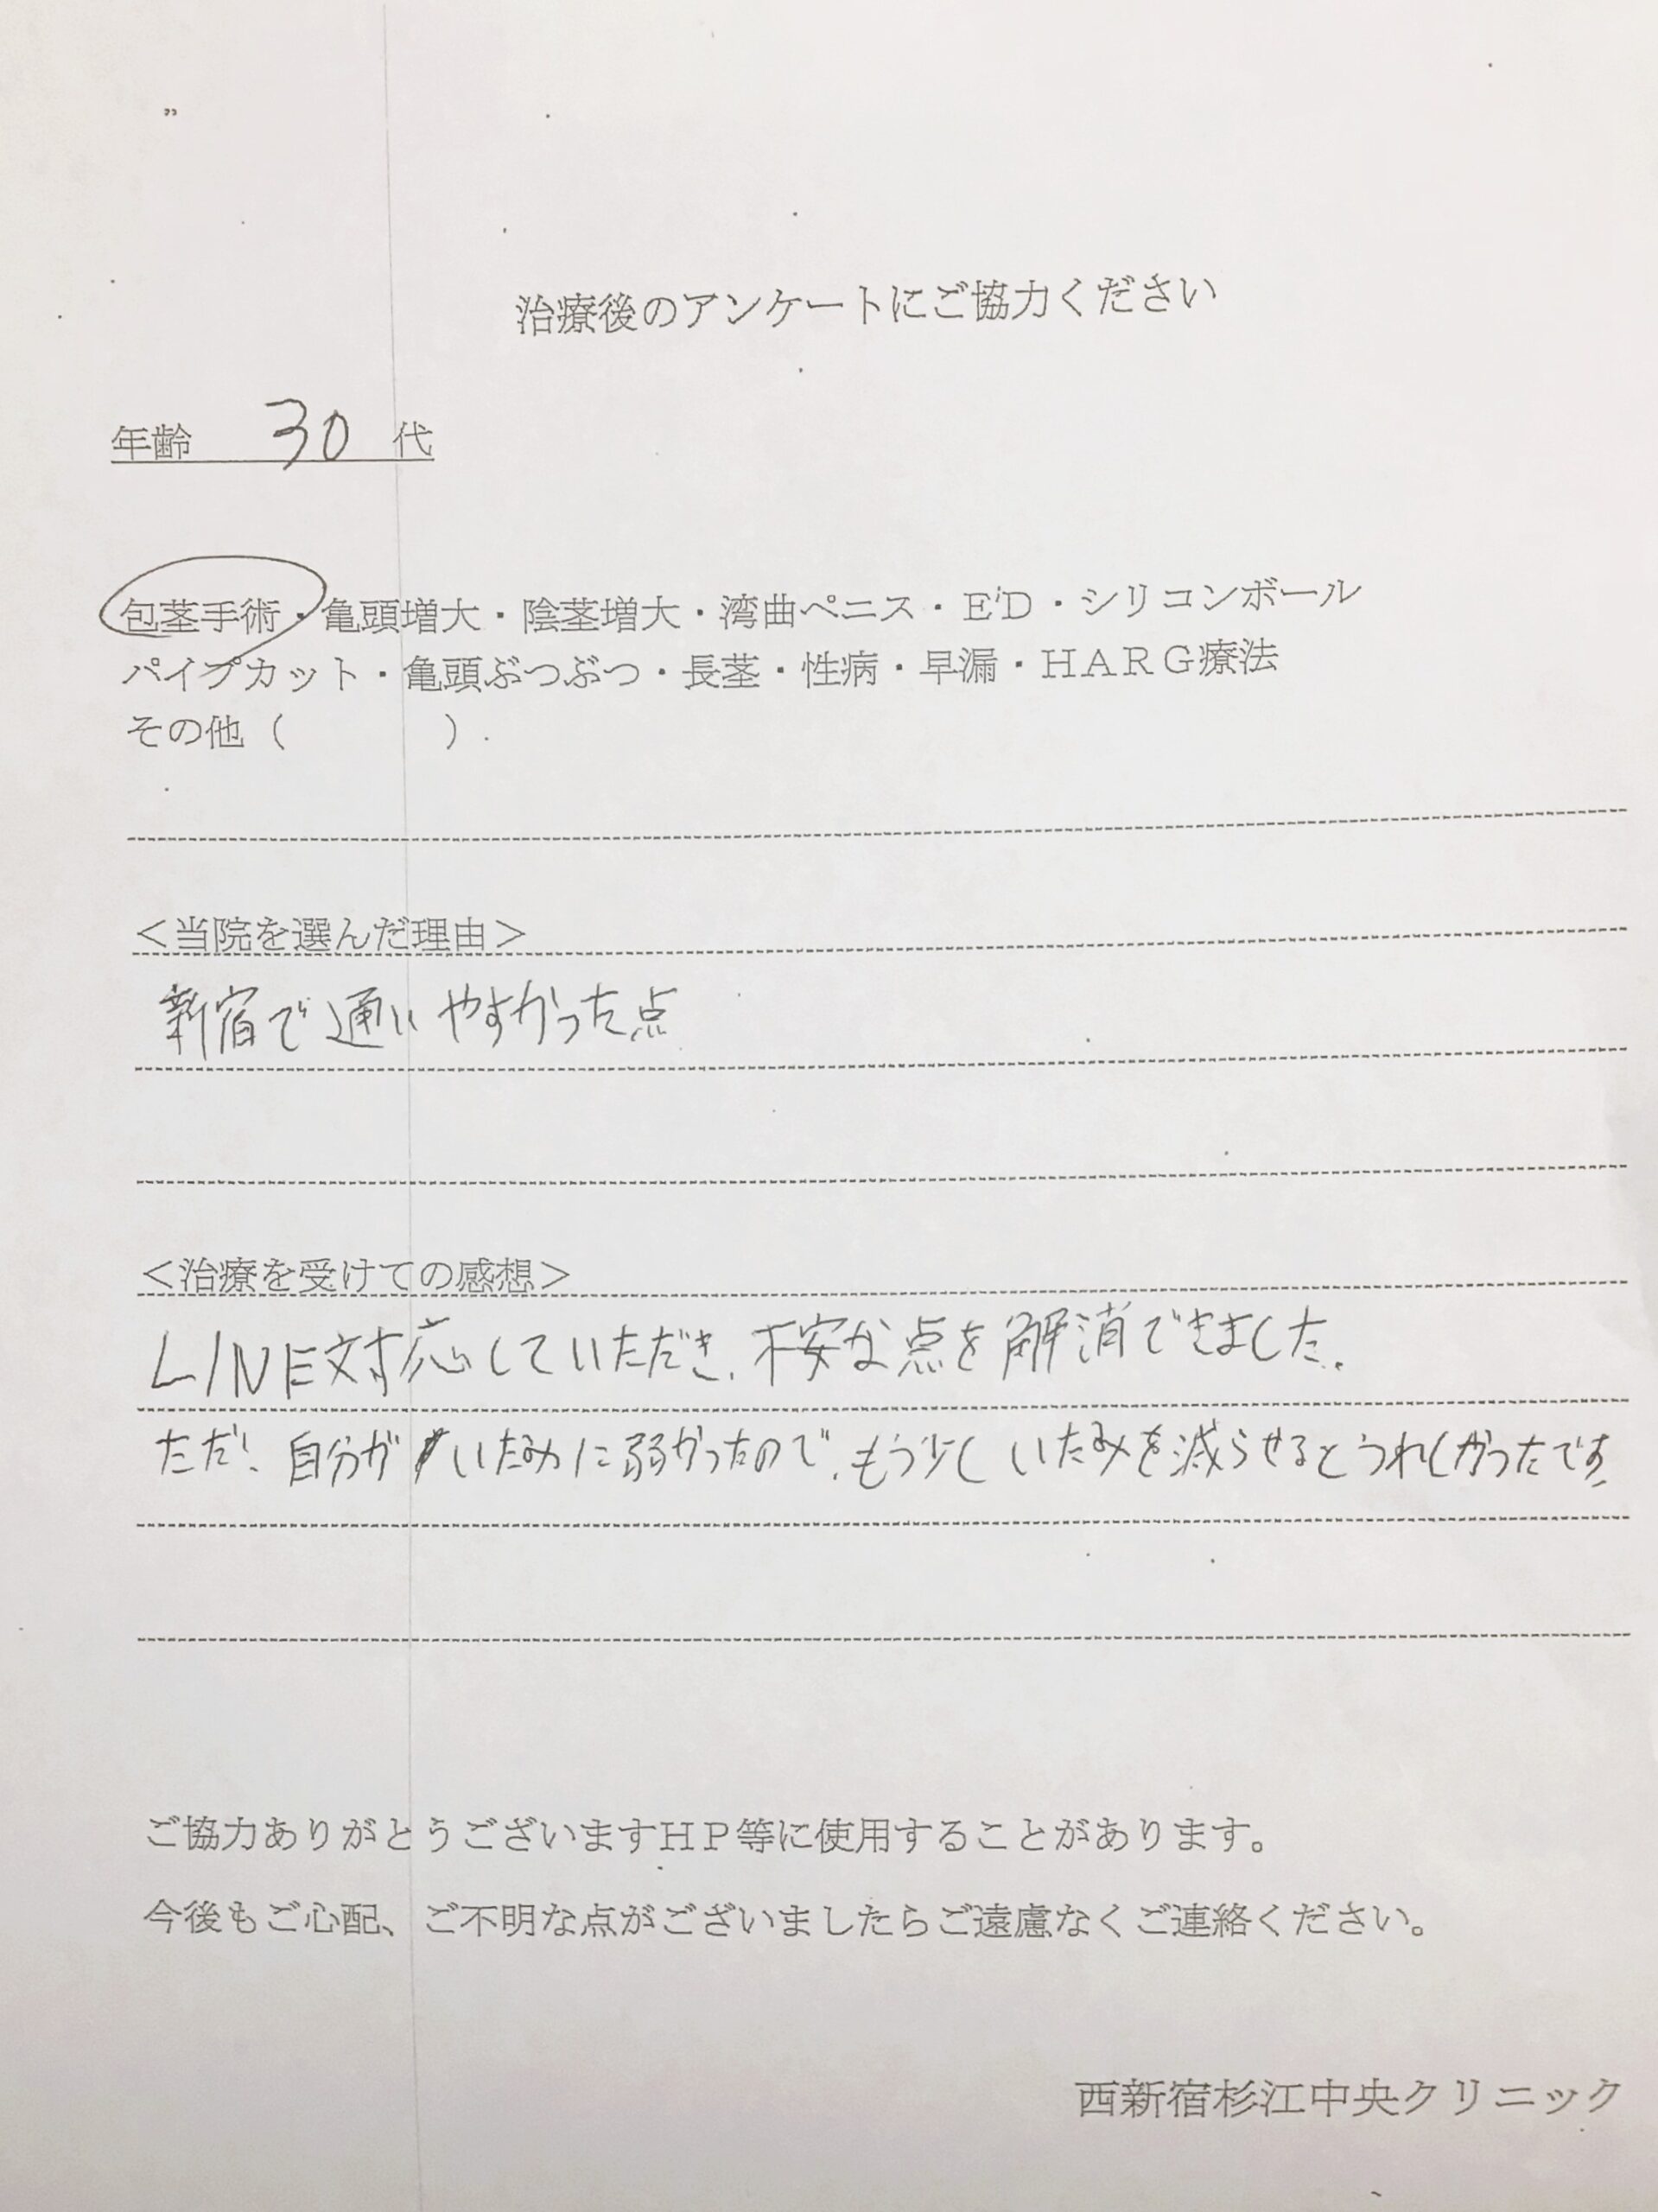 治療後のアンケートにご協力ください
年齢 30 代
包茎手術・亀頭増大・陰茎増大・湾曲ペニス・ＥＤ・シリコンボール
パイプカット・亀頭ぶつぶつ・長茎・性病・早漏・ＨＡＲＧ療法
その他（　　　　）
＜当院を選んだ理由＞
新宿で通いやすかった点
＜治療を受けての感想＞
LINE対応していただき、不安な点を解消できました。
ただ、自分がいたみに弱かったので、もう少しいたみを減らせるとうれしかったです。
ご協力ありがとうございますＨＰ等に使用することがあります。
今後もご心配、ご不明な点がございましたらご遠慮なくご連絡ください。
西新宿杉江中央クリニック